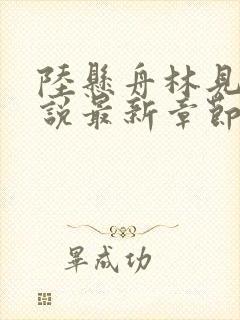 陸懸舟林見
說最新章節
畢成功